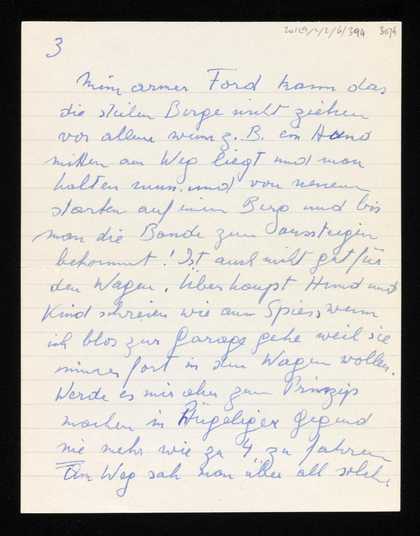 3
Mein armer Ford kann das
die steilen Berge nicht ziehen
vor allem wenn z. B. ein Hund
mitten am Weg liegt und man
halten muss und von neuem
starten auf einem Berg und bis
man die Bande zum aussteigen
bekommt! Ist auch nicht gut für
den Wagen. Überhaupt Hund und
Kind schreien wie am Spiess, wenn
ich blos zur Garage gehe weil sie
immer fort in dem Wagen wollen.
Werde es mir aber zum Prinzip
machen in Hügeliger Gegend
nie mehr wie zu 4 zu fahren
Am Weg sah man über all solche